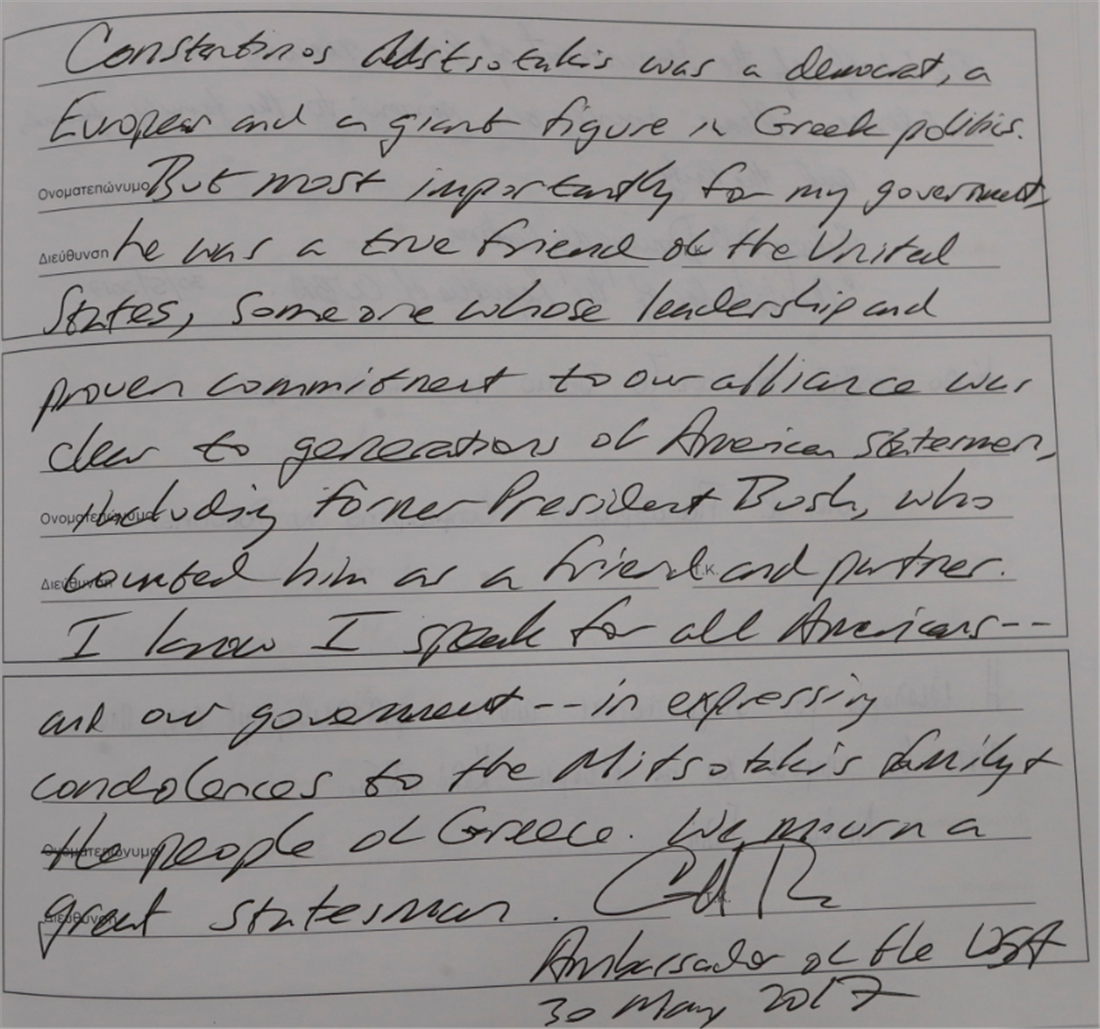 Constantinos Mitsotakis was a democrat, a
European and a giant figure in Greek politics.
Ονοματεπώνυμο But most importantly for my government,
Διεύθυνση he was a true friend of the United
States, someone whose leadership and
proven commitment to our alliance was
clear to generations of American statesmen,
Ονοματεπώνυμο including former President Bush, who
Διεύθυνση counted him as a friend Τ.Κ. and partner.
I know I speak for all Americans --
and our government -- in expressing
condolences to the Mitsotakis family +
Ονοματεπώνυμο the people of Greece. We mourn a
Διεύθυνση great statesman.
Ambassador of the USA
30 May 2017